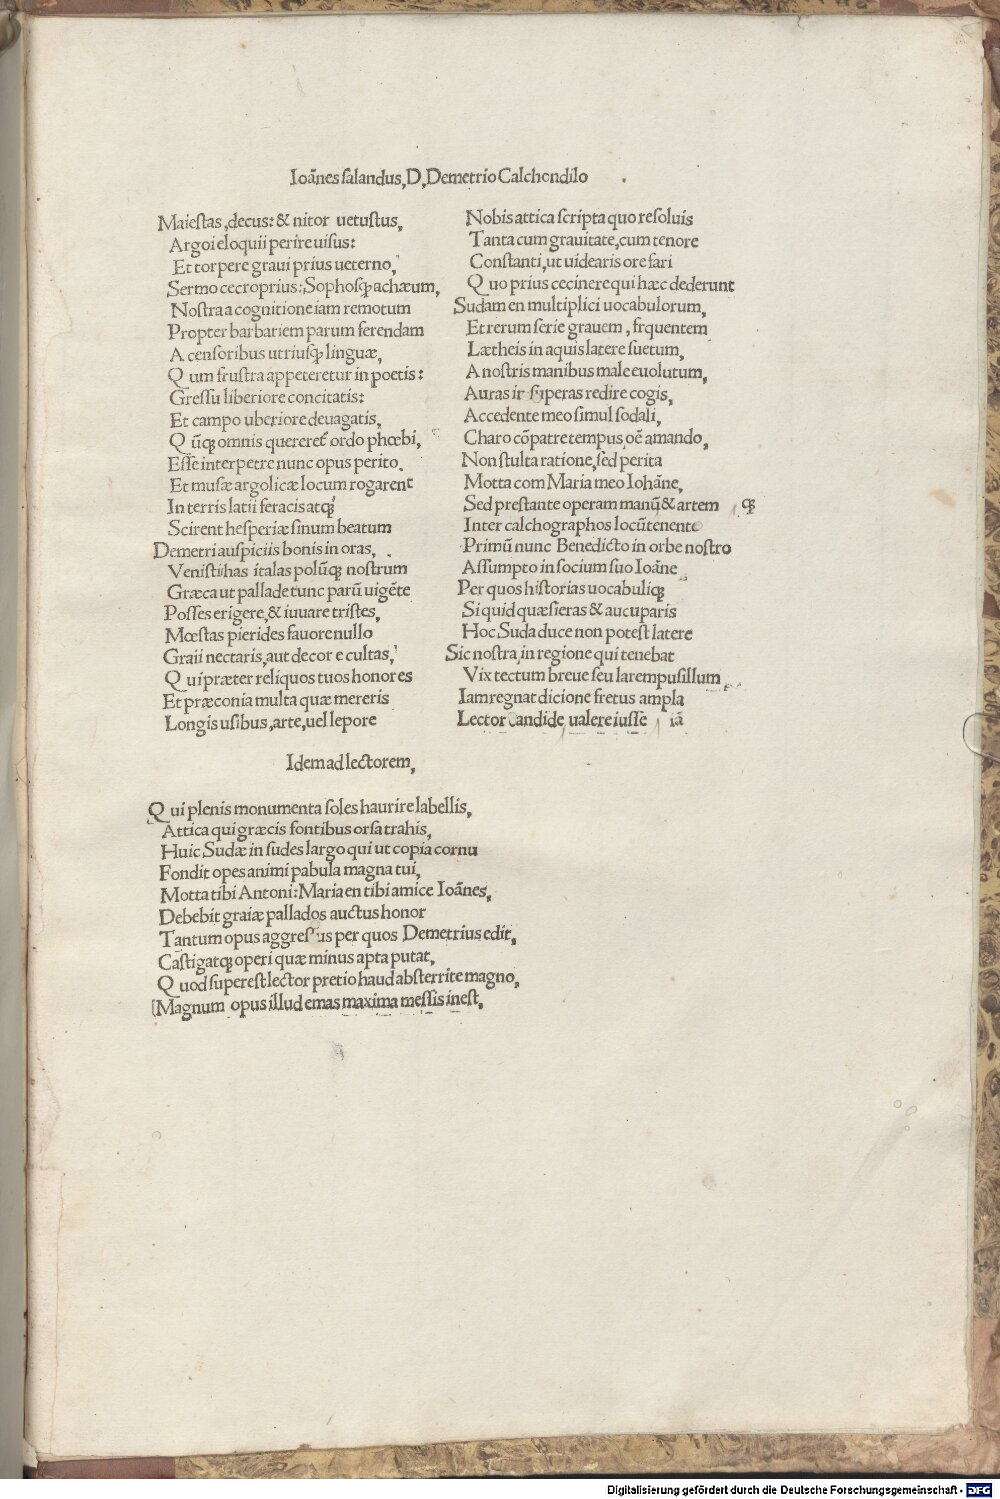 Ioānes salandus, D, Demetrio Calchondilo
Maiestas, decus: & nitor uetustus,
Argoi eloquii perire uisus:
Et torpere graui prius ueterno,
Sermo cecroprius: Sophosqꝫ achæum,
Nostra a cognitione iam remotum
Propter barbariem parum ferendam
A censoribus utriusqꝫ linguæ,
Qum frustra appeteretur in poetis:
Gressu liberiore concitatis:
Et campo uberiore deuagatis,
Qūqꝫ omnis quereret̄ ordo phœbi,
Esse interpetre nunc opus perito.
Et musæ argolicæ locum rogarent
In terris latii feracis atqꝫ
Scirent hesperiæ sinum beatum
Demetri auspiciis bonis in oras,
Venisti has italas polūqꝫ nostrum
Græca ut pallade tunc parū uigēte
Posses erigere, & iuuare tristes,
Mœstas pierides fauore nullo
Graii nectaris, aut decore cultas,
Qui præter reliquos tuos honores
Et præconia multa quæ mereris
Longis usibus, arte, uel lepore
Nobis attica scripta quo resoluis
Tanta cum grauitate, cum tenore
Constanti, ut uidearis ore fari
Quo prius cecinere qui hæc dederunt
Sudam en multiplici uocabulorum,
Et rerum serie grauem, frquentem
Lætheis in aquis latere suetum,
A nostris manibus male euolutum,
Auras in superas redire cogis,
Accedente meo simul sodali,
Charo cōpatre tempus oē amando,
Non stulta ratione, sed perita
Motta com Maria meo Iohāne,
Sed prestante operam manū & artem qꝫ
Inter calchographos locū tenente
Primū nunc Benedicto in orbe nostro
Assumpto in socium suo Ioāne
Per quos historias uocabuliqꝫ
Si quid quæsieras & aucuparis
Hoc Suda duce non potest latere
Sic nostra in regione qui tenebat
Vix tectum breue seu larem pusillum
Iam regnat dicione fretus ampla
Lector candide ualere iusse iā
Idem ad lectorem,
Qui plenis monumenta soles haurire labellis,
Attica qui græcis fontibus orsa trahis,
Huic Sudæ in sudes largo qui ut copia cornu
Fondit opes animi pabula magna tui,
Motta tibi Antoni: Maria en tibi amice Ioānes,
Debebit graiæ pallados auctus honor
Tantum opus aggressus per quos Demetrius edit,
Castigatqꝫ operi quæ minus apta putat,
Quod superest lector pretio haud absterrite magno,
Magnum opus illud emas maxima messis inest,
Digitalisierung gefördert durch die Deutsche Forschungsgemeinschaft - DFG